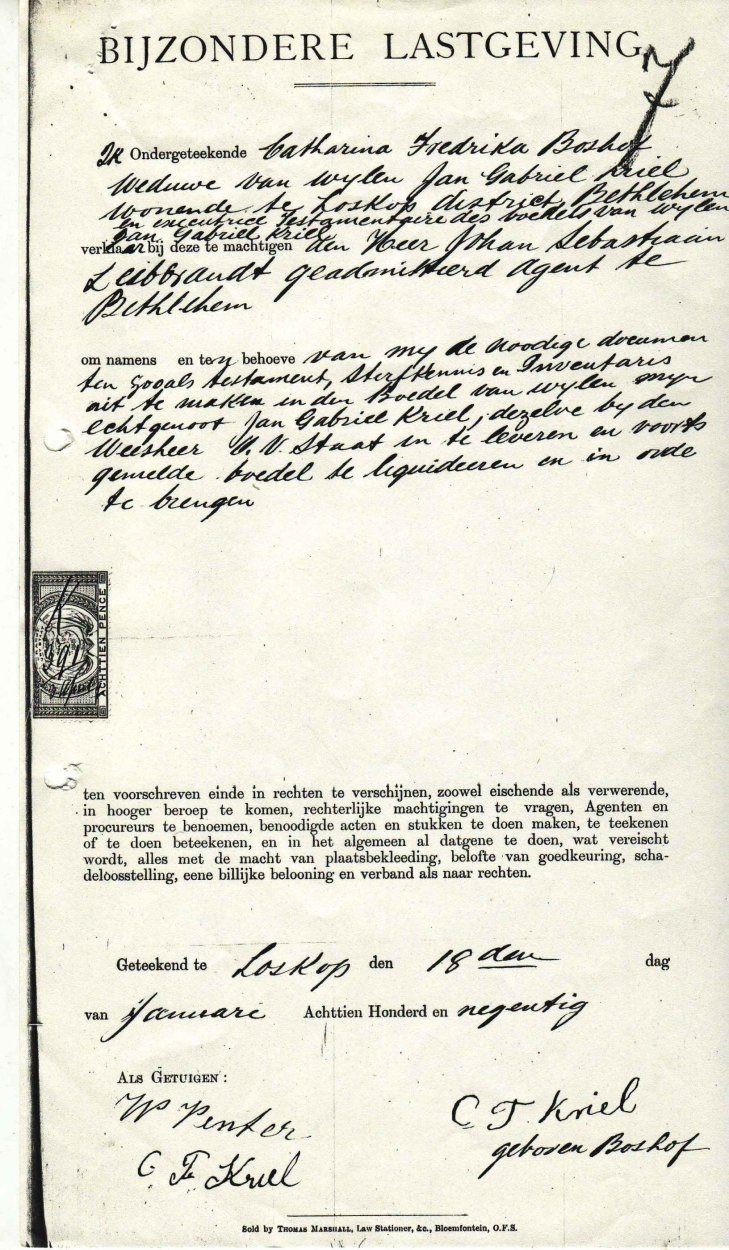 BIJZONDERE LASTGEVING
7
Ik Ondergeteekende Catharina Fredrika Boshof
Weduwe van wylen Jan Gabriel Kriel
wonende te Loskop district Bethlehem
en executrice Testamentaire des boedels van wylen
Jan Gabriel Kriel
verklaar bij deze te machtigen den Heer Johan Sebastiaan
Leibbrandt geadmitteerd Agent te
Bethlehem
om namens en ten behoeve van my de noodige documen
ten zooals testament, Sterfkennis en Inventaris
uit te maken in den Boedel van wylen myn
echtgenoot Jan Gabriel Kriel, dezelve by den
Weesheer O. V. Staat in te leveren en voorts
gemelde boedel te liquideeren en in orde
te brengen
ACHTTIEN PENCE
ten voorschreven einde in rechten te verschijnen, zoowel eischende als verwerende,
in hooger beroep te komen, rechterlijke machtigingen te vragen, Agenten en
procureurs te benoemen, benoodigde acten en stukken te doen maken, te teekenen
of te doen beteekenen, en in het algemeen al datgene te doen, wat vereischt
wordt, alles met de macht van plaatsbekleeding, belofte van goedkeuring, scha-
deloosstelling, eene billijke belooning en verband als naar rechten.
Geteekend te Loskop den 18 den dag
van Januari Achttien Honderd en negentig
ALS GETUIGEN:
Penter
C F Kriel
C F Kriel
geboren Boshof
Sold by THOMAS MARSHALL, Law Stationer, &c., Bloemfontein, O.F.S.